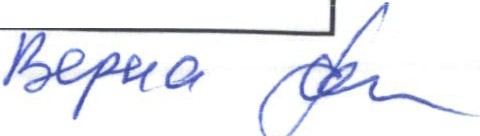 Верна